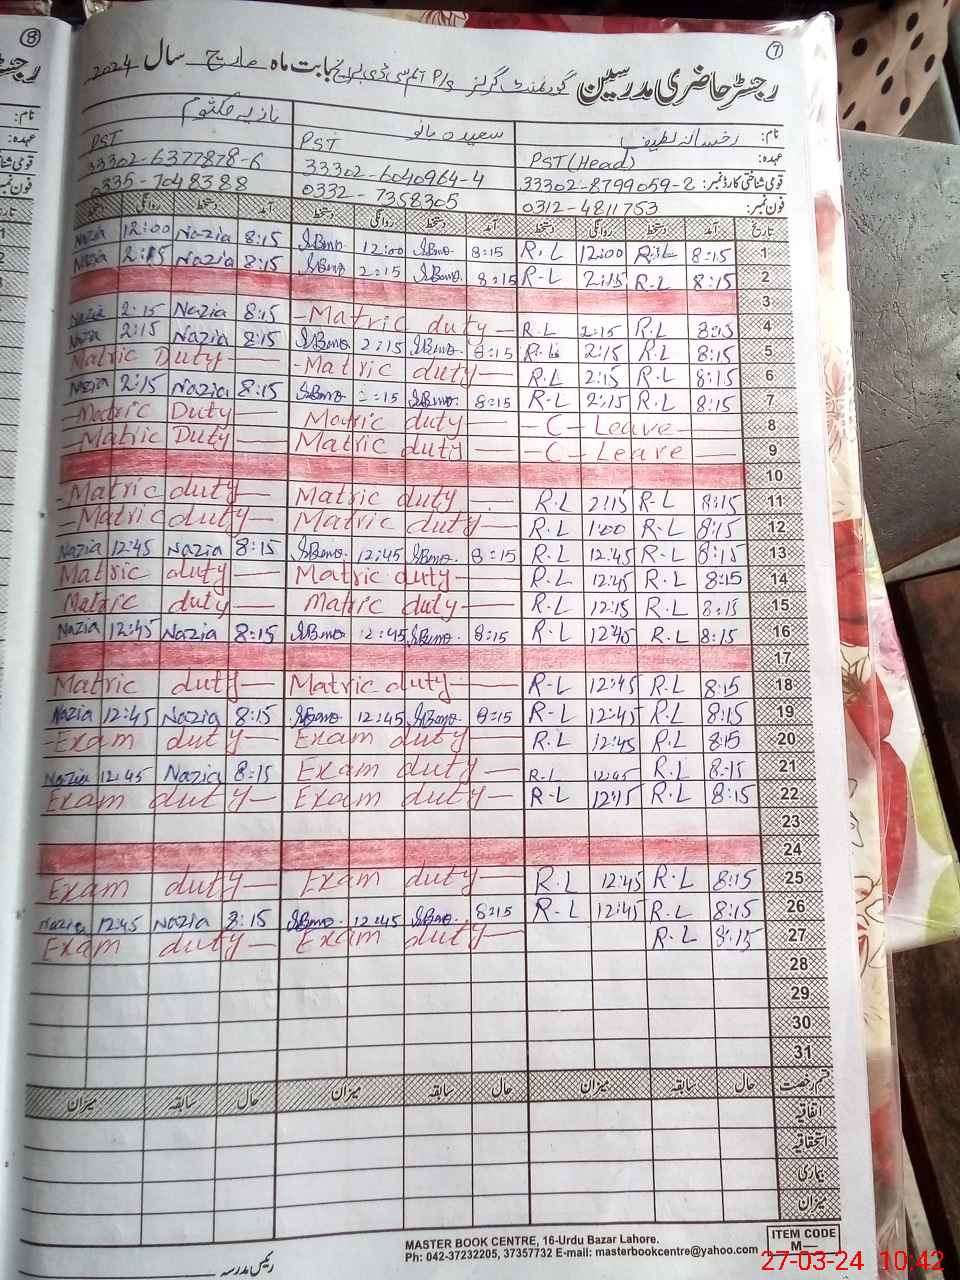 8
7
رجسٹر حاضری مدرسین گورنمنٹ گرلز P/S ایم سی ڈی بابت ماہ مارچ سال 2024
نام: رخسانہ لطیف سعیدہ بانو نازیہ کلثوم
عہدہ: PST (Head) PST PST
قومی شناختی کارڈ نمبر: 33302-8799059-2 33302-6040964-4 33302-6377878-6
فون نمبر: 0312-4811753 0332-7358305 0335-7048388
تاریخ آمد دستخط روانگی دستخط آمد دستخط روانگی دستخط آمد دستخط روانگی دستخط
Nazia 12:00 Nazia 8:15 12:00 8:15 R.L 12:00 R.L 8:15 1
Nazia 2:15 Nazia 8:15 2:15 8:15 R-L 2:15 R-L 8:15 2
3
Nazia 2:15 Nazia 8:15 -Matric duty- R.L 2:15 R.L 8:15 4
Nazia 2:15 Nazia 8:15 2:15 8:15 R.L 2:15 R.L 8:15 5
Matric Duty — -Matric duty- R.L 2:15 R.L 8:15 6
Nazia 2:15 Nazia 8:15 2:15 8:15 R.L 2:15 R.L 8:15 7
-Matric Duty — Matric duty — -C-Leave — 8
-Matric Duty — Matric duty — -C-Leave — 9
10
-Matric duty — Matric duty — R.L 2:15 R-L 8:15 11
-Matric duty — Matric duty — R.L 1:00 R-L 8:15 12
Nazia 12:45 Nazia 8:15 12:45 8:15 R.L 12:45 R-L 8:15 13
Matric duty — Matric duty — R.L 12:45 R-L 8:15 14
Matric duty — Matric duty — R.L 12:15 R.L 8:15 15
Nazia 12:45 Nazia 8:15 12:45 8:15 R.L 12:45 R.L 8:15 16
17
Matric duty — Matric duty — R-L 12:45 R.L 8:15 18
Nazia 12:45 Nazia 8:15 12:45 8:15 R-L 12:45 R.L 8:15 19
-Exam duty — Exam duty — R.L 12:45 R.L 8:15 20
Nazia 12:45 Nazia 8:15 Exam duty — R-L 12:45 R.L 8:15 21
Exam duty — Exam duty — R-L 12:15 R.L 8:15 22
23
24
Exam duty — Exam duty — R.L 12:45 R.L 8:15 25
Nazia 12:45 Nazia 8:15 12:45 8:15 R-L 12:45 R.L 8:15 26
Exam duty — Exam duty — R.L 8:15 27
28
29
30
31
قسم رخصت حال سابقہ میزان حال سابقہ میزان حال سابقہ میزان
اتفاقیہ
استحقاقیہ
بیماری
میزان
رئیس مدرسہ
MASTER BOOK CENTRE, 16-Urdu Bazar Lahore.
Ph: 042-37232205, 37357732 E-mail: masterbookcentre@yahoo.com
ITEM CODE
M—
27-03-24 10:42